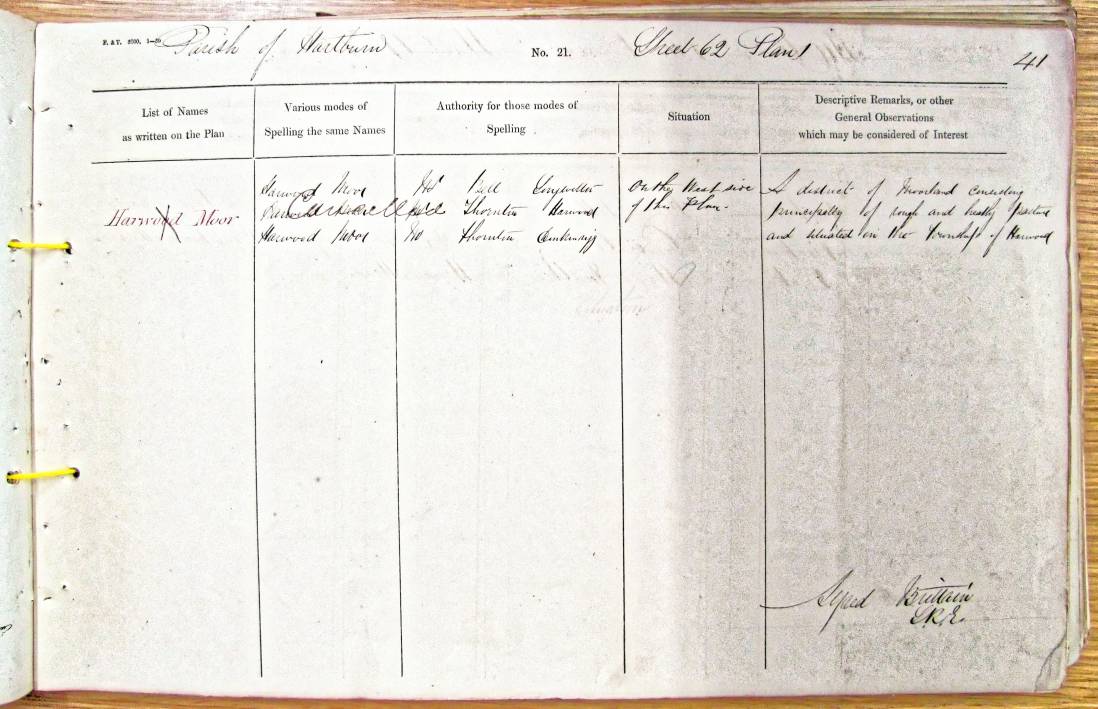 Parish of Hartburn No. 21. Sheet 62 Plan 1 41
List of Names
as written on the Plan
Various modes of
Spelling the same Names
Authority for those modes of
Spelling
Situation
Descriptive Remarks, or other
General Observations
which may be considered of Interest
Harwood Moor
Harwood Moor
Harwood Moor
Bell Longwitton
Thornton Harwood
Thornton
On the West side
of this Plan.
A district of Moorland consisting
principally of rough and heathy pasture
and situated in the Township of Harwood
Brittain
C.R.E.